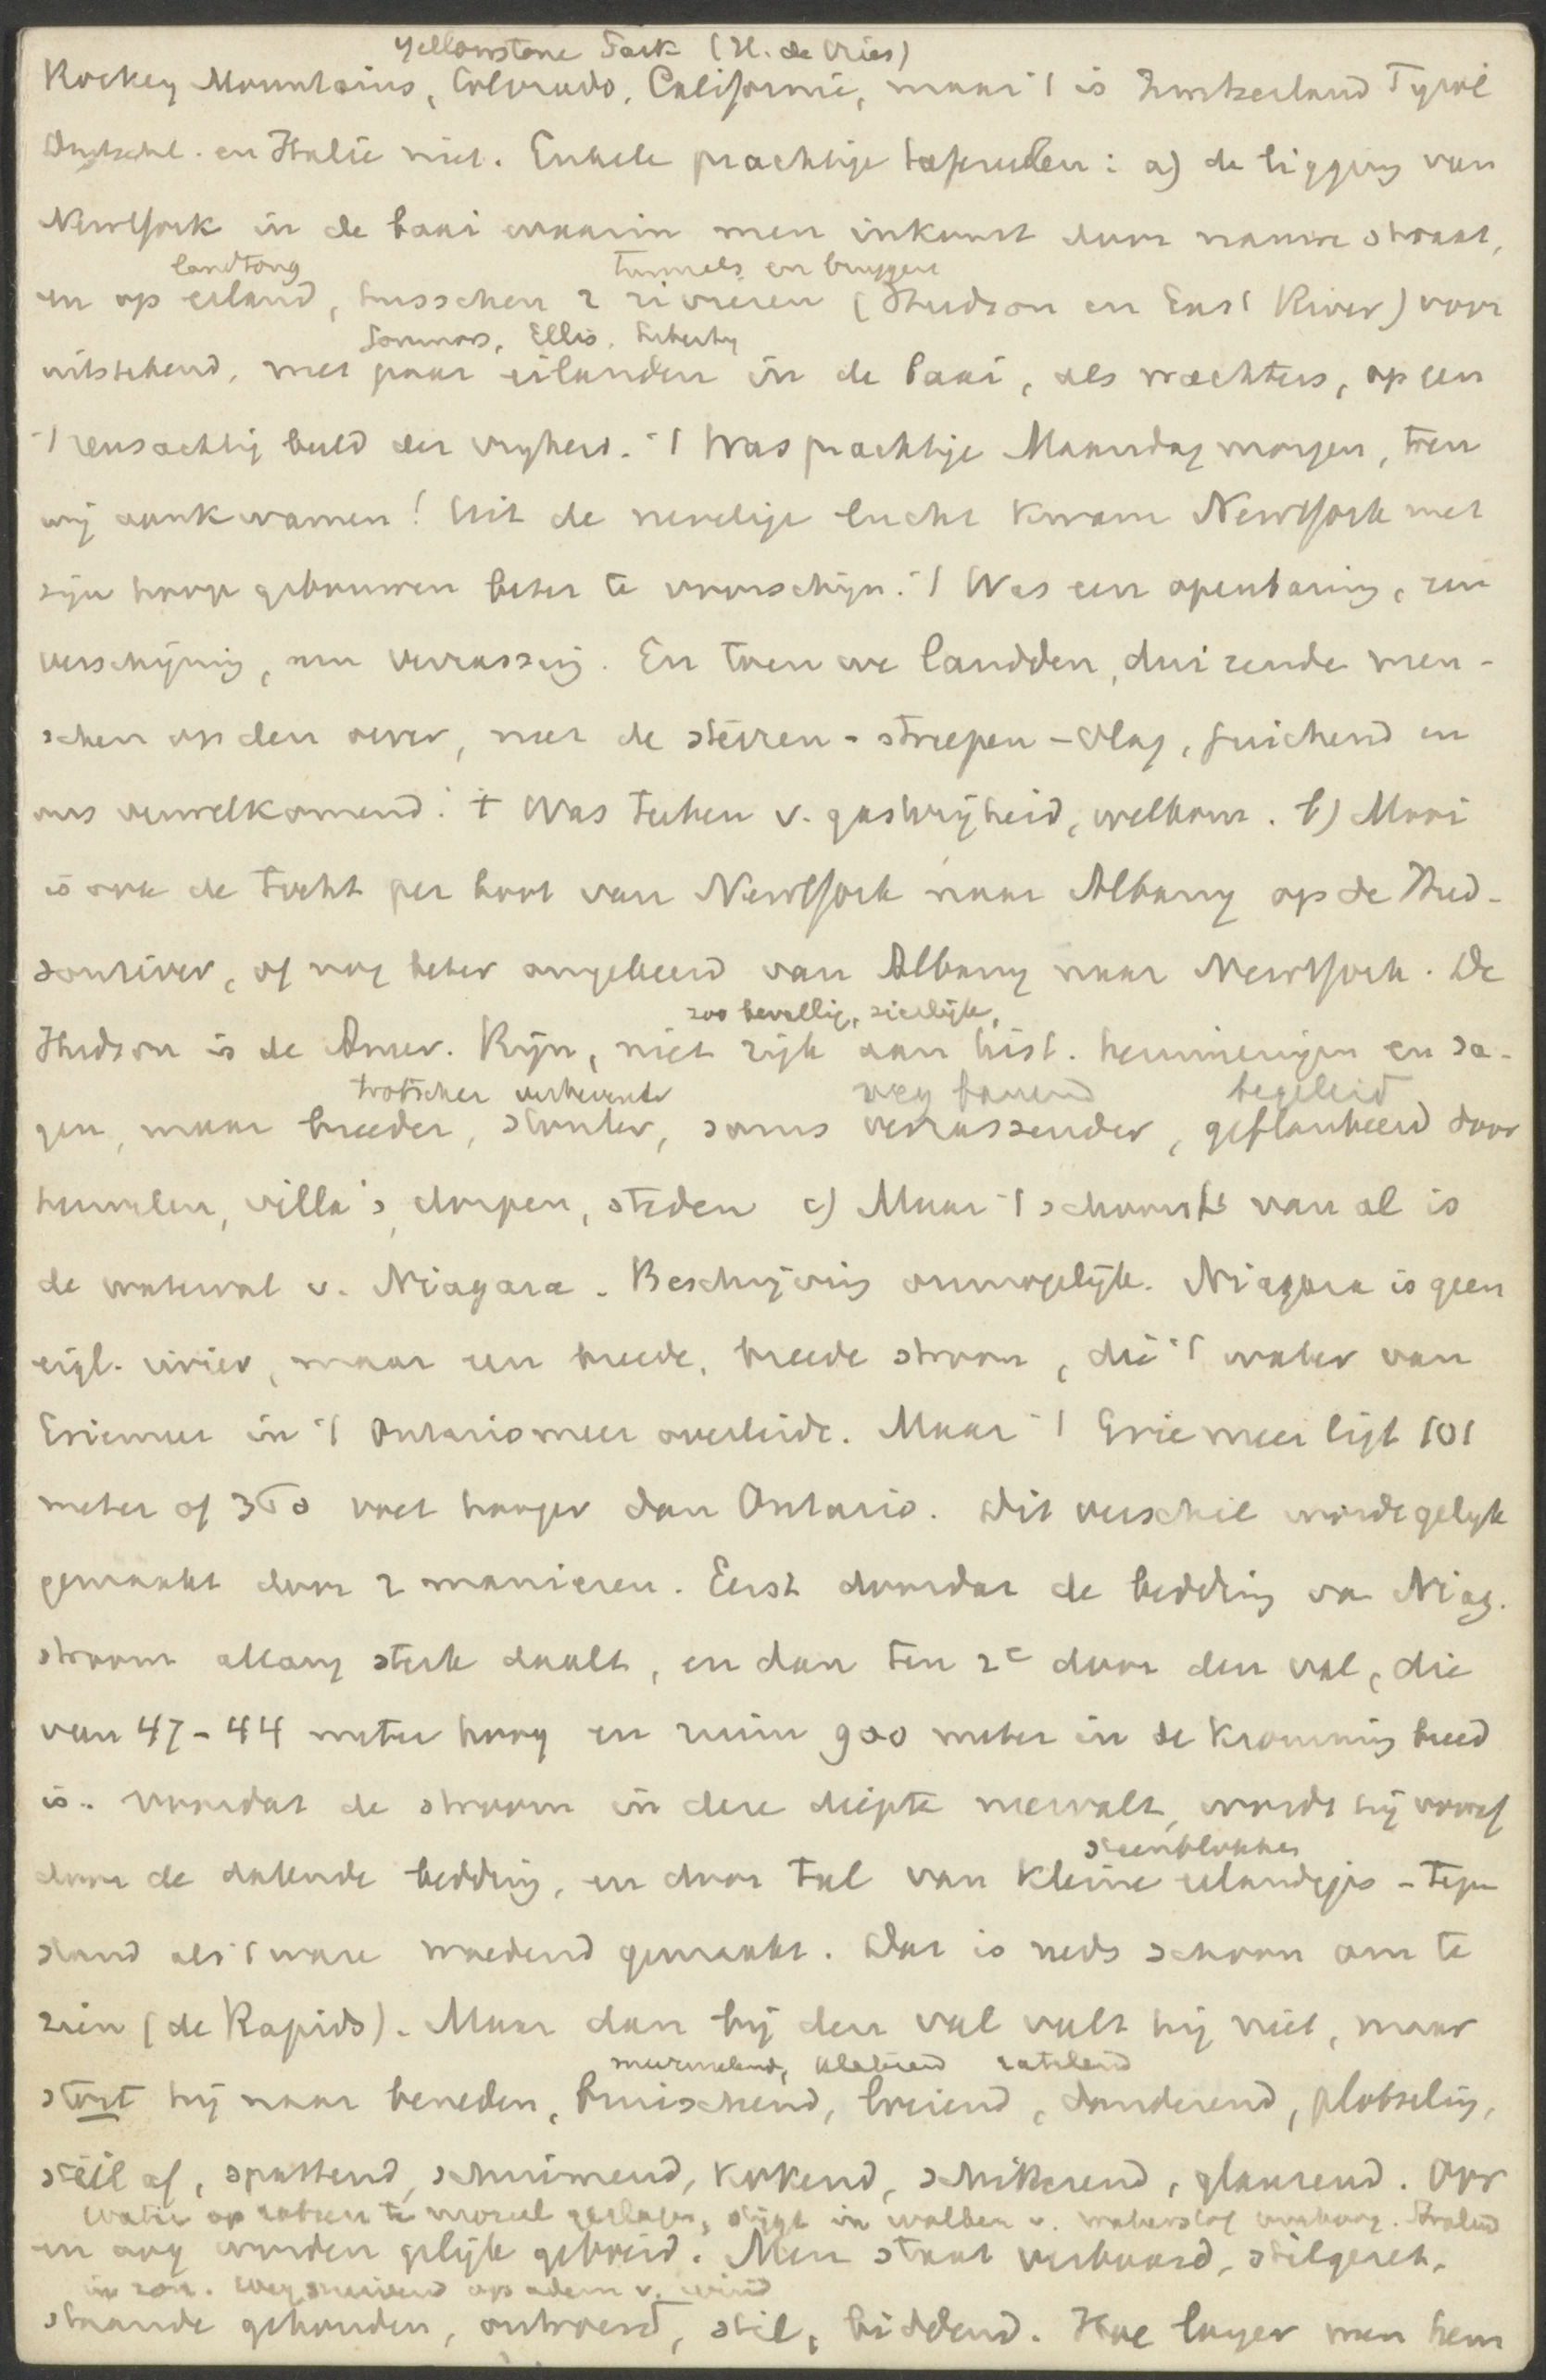 Yellowstone Park (H. de Vries)
Rockey Mountains, Colorado, Californië, maar 't is Zwitzerland Tyrol
Duitschl. en Italie niet. Enkele prachtige tafereelen: a) de ligging van
NewYork in de baai waarin men inkomt door nauwe straat,
landtong tunnels en bruggen
en op eiland, tusschen 2 rivieren (Hudson en East River) voor
Ellis, Liberty
uitstekend, met paar eilanden in de baai, als wachters, op een
't reusachtig beeld der vryheid. 't Was prachtige Maandag morgen, toen
wij aankwamen! Uit de nevelige lucht kwam NewYork met
zijn hooge gebouwen beter te voorschijn. 't Was een openbaring, een
verschijning, een verrassing. En toen we landden, duizende men-
schen op den oever, met de sterren-strepen-vlag, juichend en
ons verwelkomend. 't Was teeken v. gastvrijheid, welkom. b) Mooi
is ook de tocht per boot van NewYork naar Albany op de Hud-
sonriver, of nog beter omgekeerd van Albany naar NewYork. De
zoo bevallig, sierlijk,
Hudson is de Amer. Rijn, niet rijk aan hist. herinneringen en sa-
trotscher weg banend begeleid
gen, maar breeder, stouter, soms verrassender, geflankeerd door
heuvelen, villa's, dorpen, steden c) Maar 't schoonste van al is
de waterval v. Niagara. Beschrijving onmogelijk. Niagara is geen
eigl. rivier, maar een breede, breede stroom, die 't water van
Eriemeer in 't Ontariomeer overleidt. Maar 't Eriemeer ligt 101
meter of 360 voet hooger dan Ontario. Dit verschil wordt gelijk
gemaakt door 2 manieren. Eerst doordat de bedding van Niag.
stroom allang sterk daalt, en dan ten 2e door den val, die
van 47-44 meter hoog en ruim 900 meter in de kromming breed
is. Voordat de stroom in deze diepte neervalt, wordt hij vooraf
steenblokken
door de dalende bedding, en door tal van kleine eilandjes - tegen
stand als 't ware woedend gemaakt. Dat is reeds schoon om te
zien (de Rapids). Maar dan bij den val valt hij niet, maar
murmelend, ratelend
stort hij naar beneden, bruischend, donderend, plotseling,
steil af, spattend, schuimend, kokend, schitterend, glanzend. Oor
Water op rotsen te stijgt in wolken v. waterstof omhoog.
en oog worden gelijk geboeid. Men staat verbaasd, stilgezet,
in zon. op adem v. wind
staande gehouden, ontroerd, stil, biddend. Hoe langer men hem